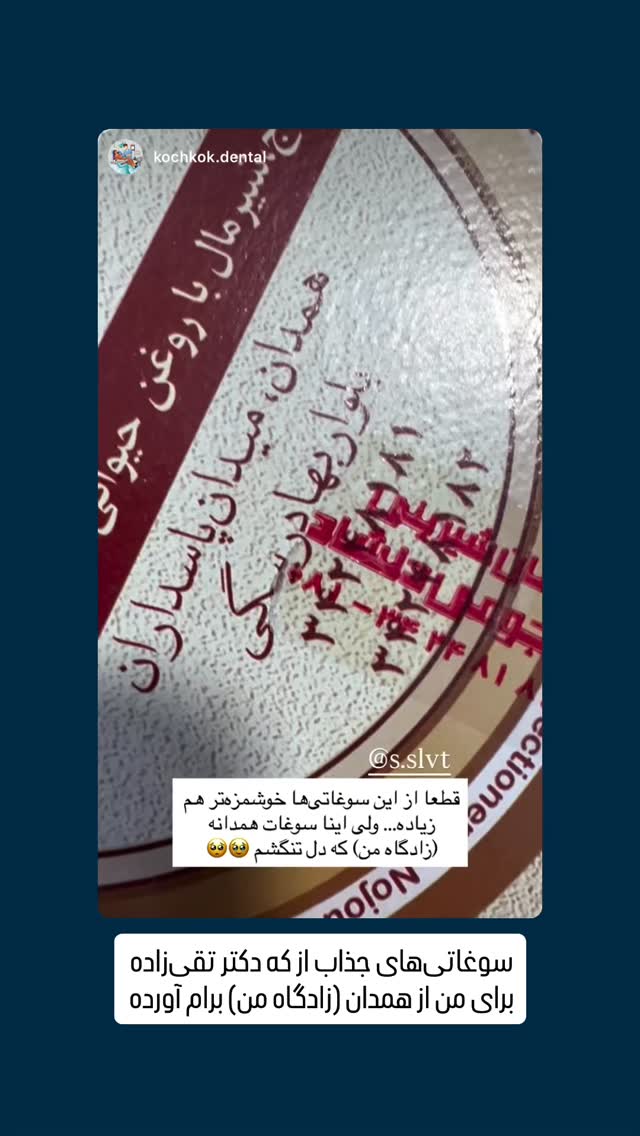 kochkok.dental
ج شیرمال با روغن حیوانی
همدان، میدان پاسداران
بلوار بهادربیگی
@s.slvt
قطعا از این سوغاتی‌ها خوشمزه‌تر هم
زیاده... ولی اینا سوغات همدانه
(زادگاه من) که دل تنگشم 🥹🥹
Nojou
سوغاتی‌های جذاب از که دکتر تقی‌زاده
برای من از همدان (زادگاه من) برام آورده